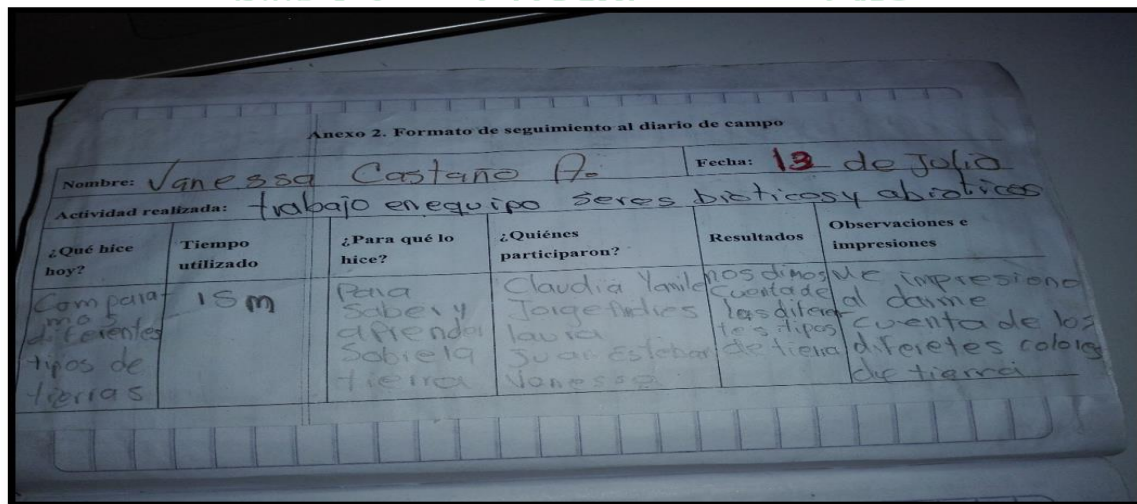 Anexo 2. Formato de seguimiento al diario de campo
Nombre: Vanessa Castaño A.
Fecha: 13 de Julio
Actividad realizada: trabajo en equipo seres bioticos y abioticos
¿Qué hice hoy?
Tiempo utilizado
¿Para qué lo hice?
¿Quiénes participaron?
Resultados
Observaciones e impresiones
Compara
mos
diferentes
tipos de
tierras
15 m
Para
saber y
aprender
sobre la
tierra
Claudia Yamile
Jorge Andres
laura
Juan Esteban
Vanessa
nos dimos
cuenta de
las diferen
tes tipos
de tierra
Me impresiono
al darme
cuenta de los
diferetes colores
de tierra